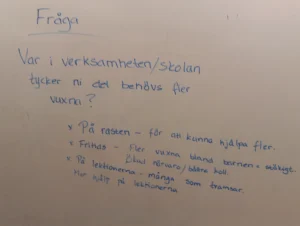 Fråga
Var i verksamheten/skolan
tycker ni det behövs fler
vuxna?
x På rasten - för att kunna hjälpa fler.
x Fritids - Fler vuxna bland barnen
Ökad närvaro/bättre koll.
x På lektionerna - många som tramsar.
Mer hjälp på lektionerna